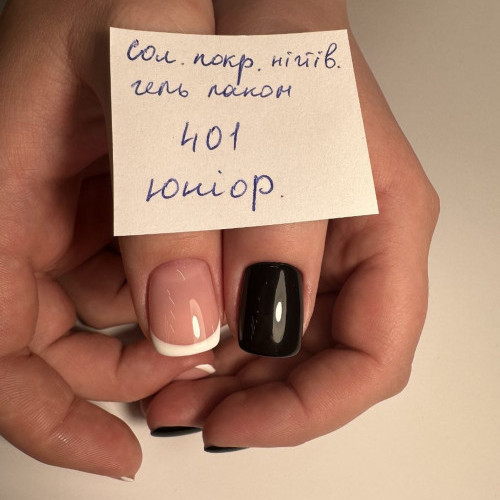 Сол. покр. нігтів.
гель лаком
401
юніор.